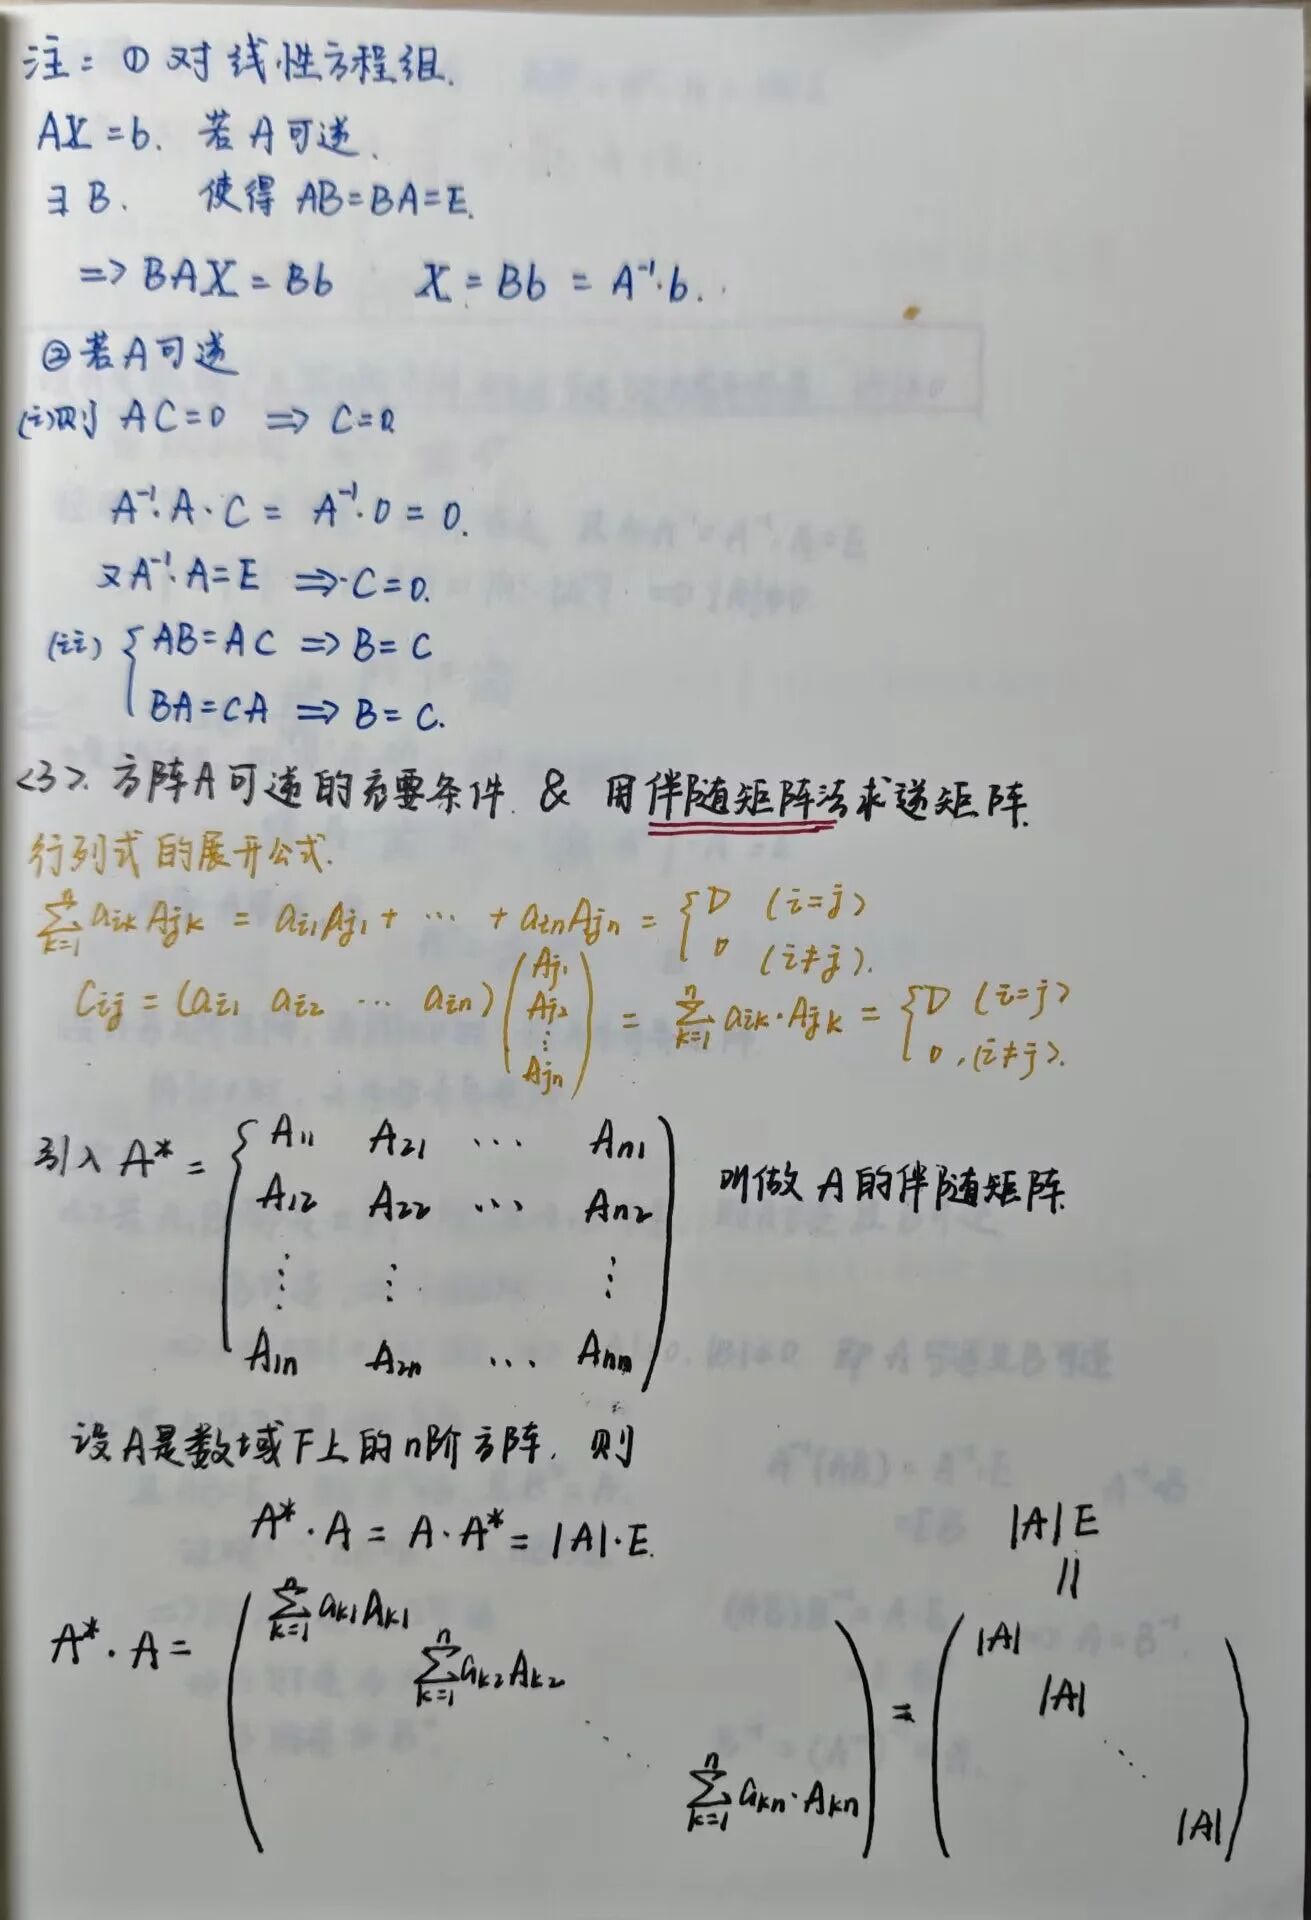 注: ① 对线性方程组.
AX = b. 若 A 可逆.
∃ B. 使得 AB=BA=E.
=> BAX = Bb X = Bb = A⁻¹·b.
② 若 A 可逆
(i)则 AC=0 => C=0
A⁻¹·A·C = A⁻¹·0 = 0.
又A⁻¹·A=E => C=0.
(ii) { AB=AC => B=C
BA=CA => B=C.
<3>. 方阵A可逆的充要条件 & 用伴随矩阵法求逆矩阵.
行列式的展开公式.
∑_{k=1}^{n} a_{ik} A_{jk} = a_{i1}A_{j1} + ··· + a_{in}A_{jn} = { D (i=j) 0 (i≠j).
C_{ij} = (a_{i1} a_{i2} ··· a_{in}) (A_{j1} A_{j2} ⋮ A_{jn}) = ∑_{k=1}^{n} a_{ik}·A_{jk} = { D (i=j) 0, (i≠j).
引入 A* = ( A₁₁ A₂₁ ··· A_{n1}
A₁₂ A₂₂ ··· A_{n2}
⋮ ⋮ ⋮
A_{1n} A_{2n} ··· A_{nn} ) 叫做 A 的伴随矩阵.
设A是数域F上的n阶方阵, 则
A*·A = A·A* = |A|·E.
|A|E
||
A*·A = ( ∑_{k=1}^{n} a_{k1}A_{k1} ∑_{k=1}^{n} a_{k2}A_{k2} ⋱ ∑_{k=1}^{n} a_{kn}·A_{kn} ) = ( |A| |A| ⋱ |A| )